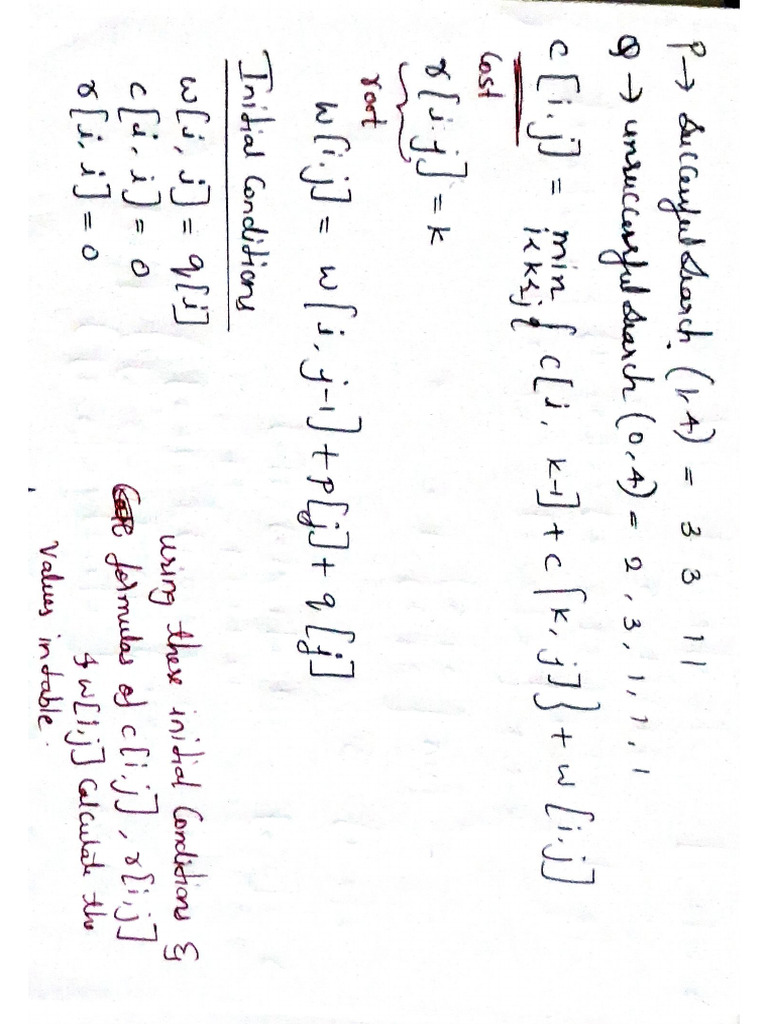 P → Successful Search (1,4) = 3 3 1 1
Q → Unsuccessful Search (0,4) = 2, 3, 1, 1, 1
c[i,j] = min { c[i, k-1] + c[k, j] } + w[i,j]
i<k≤j
Cost
r[i,j] = k
root
w[i,j] = w[i, j-1] + P[j] + q[j]
Initial Conditions
w[i, i] = q[i]
c[i, i] = 0
r[i, i] = 0
using these initial Conditions &
formulas of c[i,j], r[i,j]
& w[i,j] Calculate the
values in table.